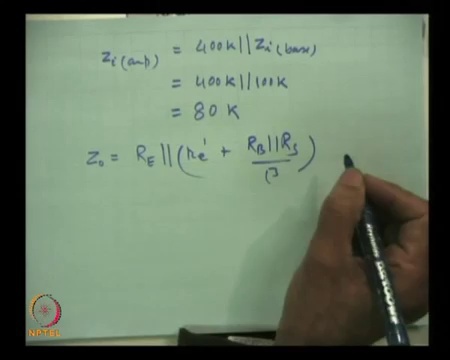 Zi(amp) = 400K || Zi(base)
= 400K || 100K
= 80 K
Z₀ = RE || (re' + RB || RS / β)
NPTEL